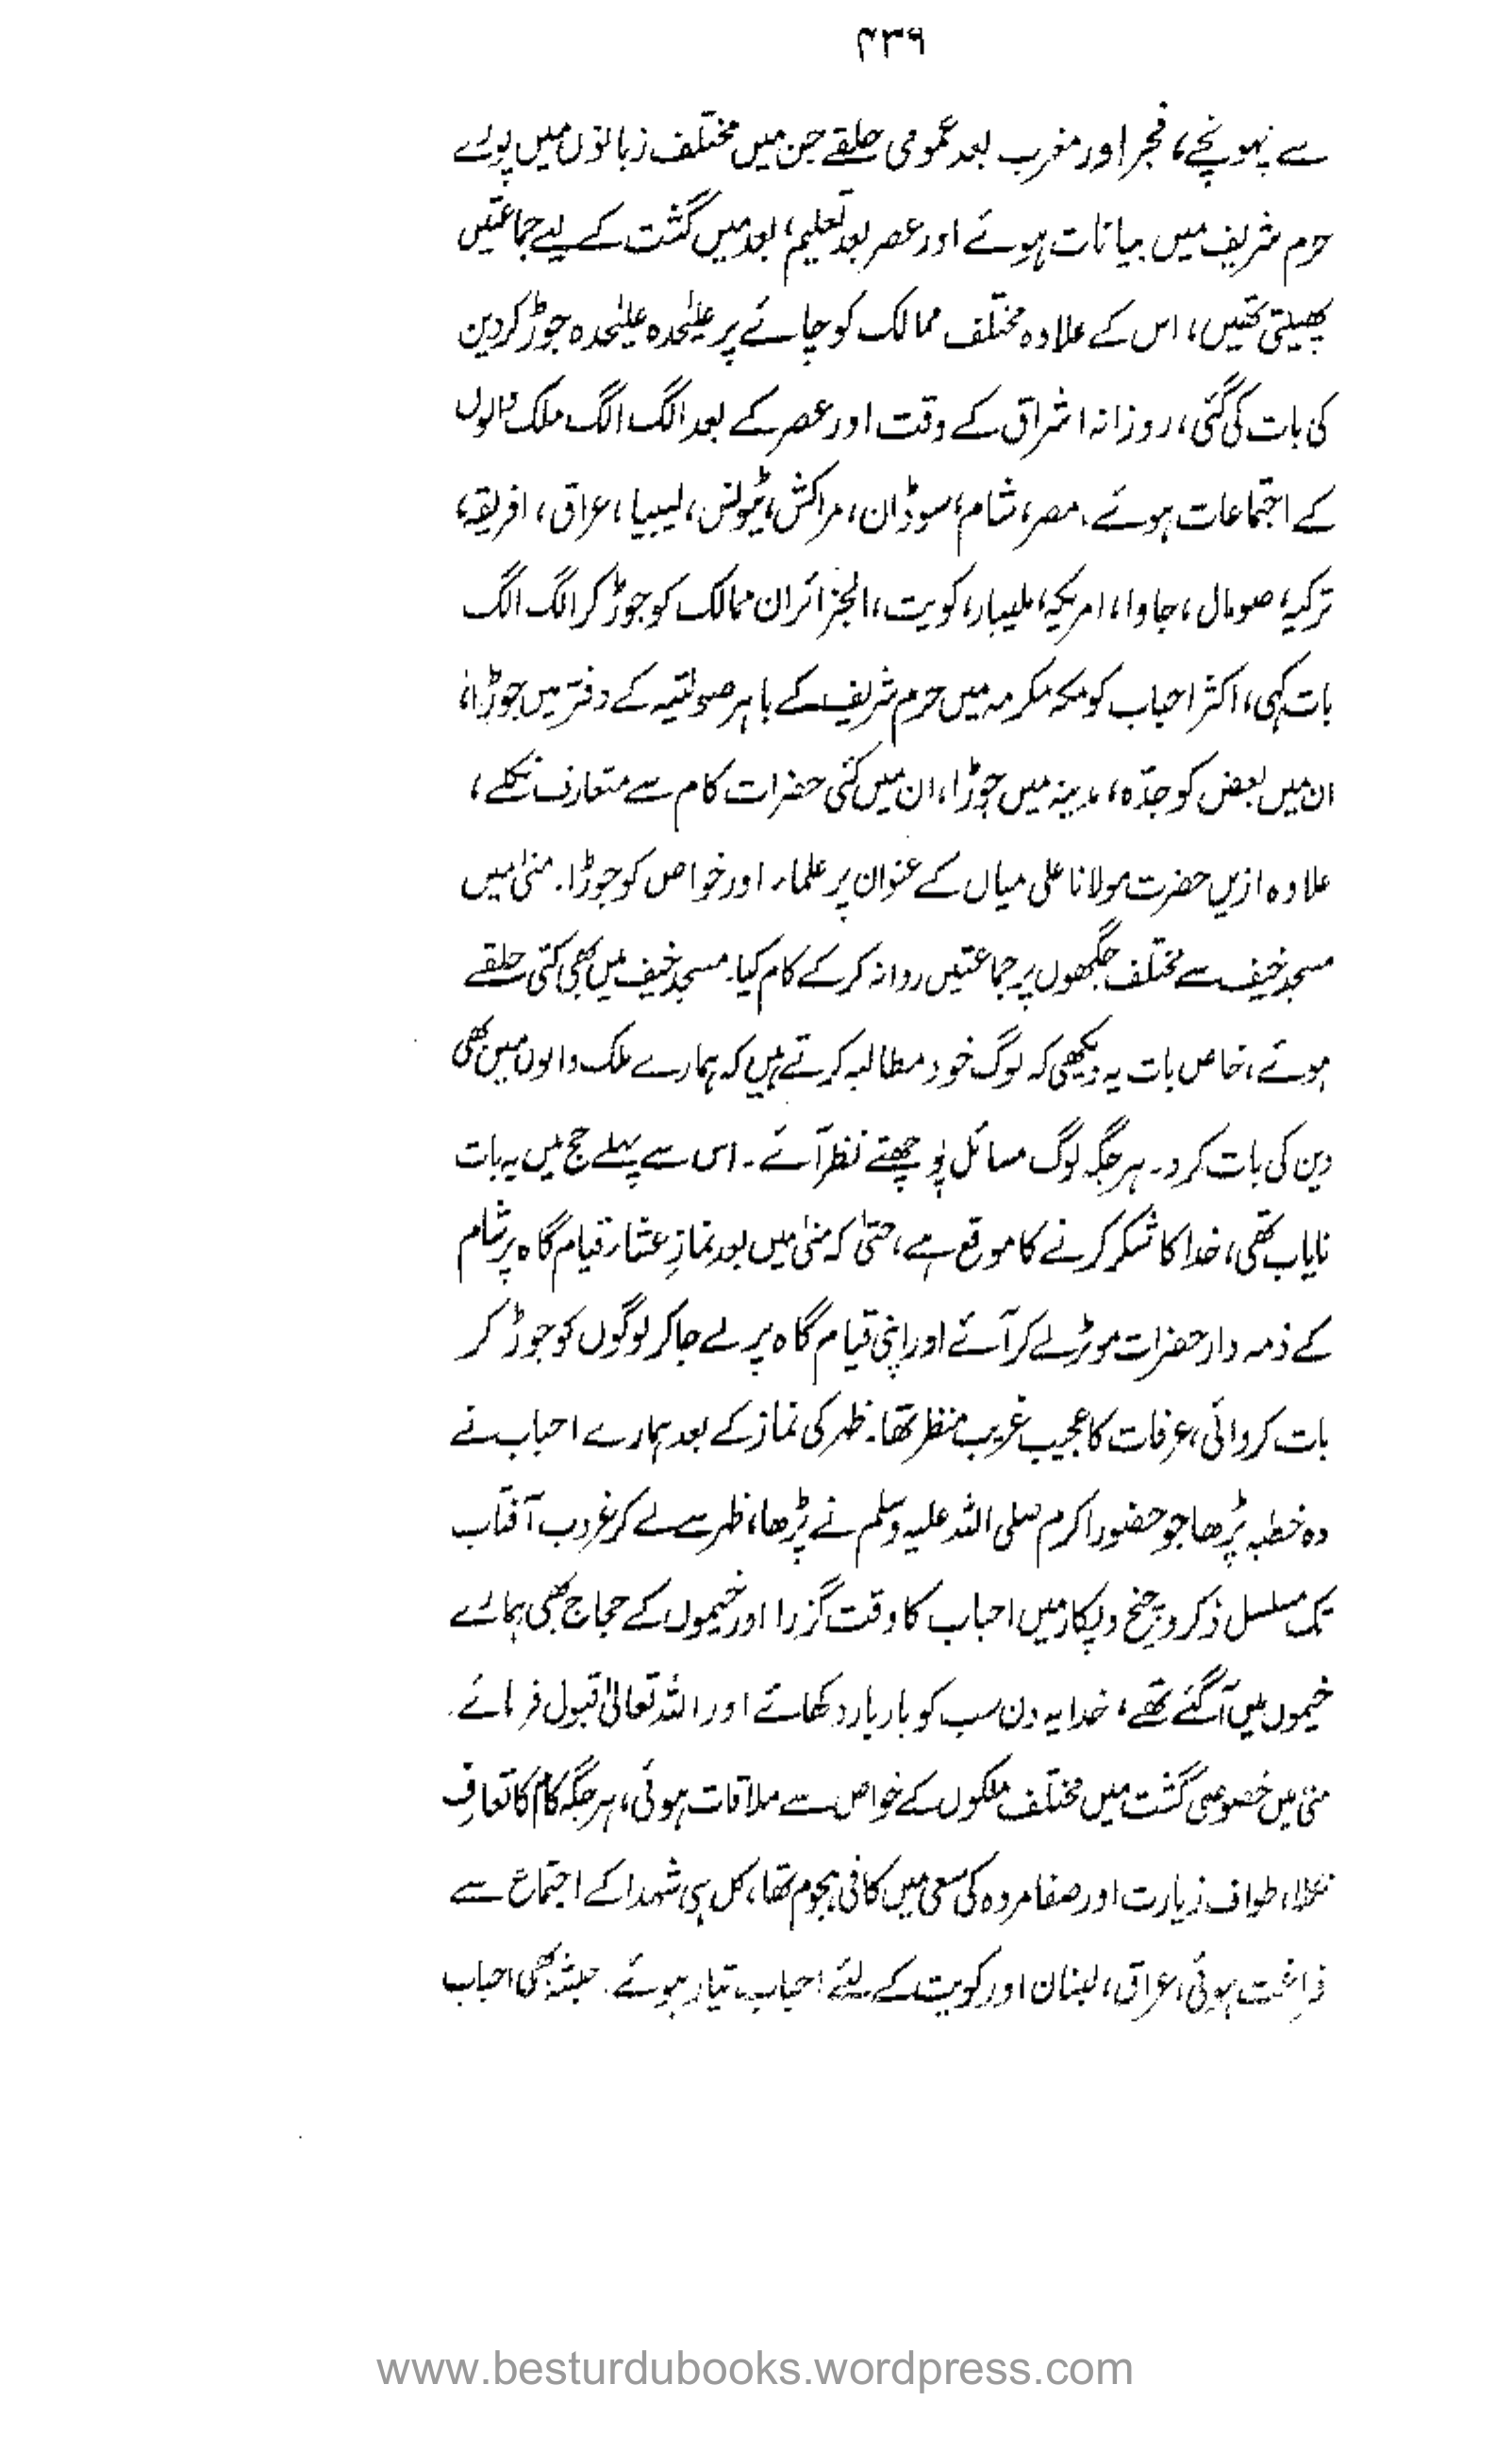 ۴۳۶
سے پہونچے، فجر اور مغرب بعد عمومی حلقے جن میں مختلف زبانوں میں پورے
حرم شریف میں بیانات ہوئے اور عصر بعد تعلیم، بعد میں گشت کے لیے جماعتیں
پھیلتی تھیں، اس کے علاوہ مختلف ممالک کو چائے پر علیٰحدہ علیٰحدہ جوڑ کر دین
کی بات کی گئی، روزانہ اشراق کے وقت اور عصر کے بعد الگ الگ ملک والوں
کے اجتماعات ہوئے۔ مصر، شام، سوڈان، مراکش، ٹیونس، لیبیا، عراق، افریقہ،
ترکیہ، صومال، جاوا، امریکہ، ملیبار، کویت، الجزائر ان ممالک کو جوڑ کر الگ الگ
بات کہی، اکثر احباب کو مکہ مکرمہ میں حرم شریف کے باہر صولتیہ کے دفتر میں جوڑا،
ان میں بعض کو جدّہ، مدینہ میں جوڑا، ان میں کئی حضرات کام سے متعارف نکلے،
علاوہ ازیں حضرت مولانا علی میاں کے عنوان پر علماء اور خواص کو جوڑا۔ منیٰ میں
مسجد خیف سے مختلف جگہوں پر جماعتیں روانہ کر کے کام کیا۔ مسجد خیف میں بھی کئی حلقے
ہوئے، خاص بات یہ دیکھی کہ لوگ خود مطالبہ کرتے ہیں کہ ہمارے ملک والوں میں بھی
دین کی بات کرو۔ ہر جگہ لوگ مسائل پوچھتے نظر آئے۔ اس سے پہلے حج میں یہ بات
نایاب تھی، خدا کا شکر کرنے کا موقع ہے، حتیٰ کہ منیٰ میں بعد نمازِ عشاء قیام گاہ پر شام
کے ذمہ دار حضرات موٹر لے کر آئے اور اپنی قیام گاہ پر لے جا کر لوگوں کو جوڑ کر
بات کروائی، عرفات کا عجیب غریب منظر تھا۔ ظہر کی نماز کے بعد ہمارے احباب نے
وہ خطبہ پڑھا جو حضور اکرم صلی اللہ علیہ وسلم نے پڑھا، ظہر سے لے کر غروب آفتاب
تک مسلسل ذکر و چیخ و پکار میں احباب کا وقت گزرا اور خیموں کے حجاج بھی ہمارے
خیموں میں آ گئے تھے، خدا یہ دن سب کو بار بار دکھائے اور اللہ تعالیٰ قبول فرمائے۔
منیٰ میں خصوصی گشت میں مختلف ملکوں کے خواص سے ملاقات ہوئی، ہر جگہ کام کا تعارف
نکلا، طواف زیارت اور صفا مروہ کی سعی میں کافی ہجوم تھا، کل ہی شہدا کے اجتماع سے
فراغت ہوئی، عراق، لبنان اور کویت کے لئے احباب تیار ہوئے۔ حبشہ بھی احباب
www.besturdubooks.wordpress.com